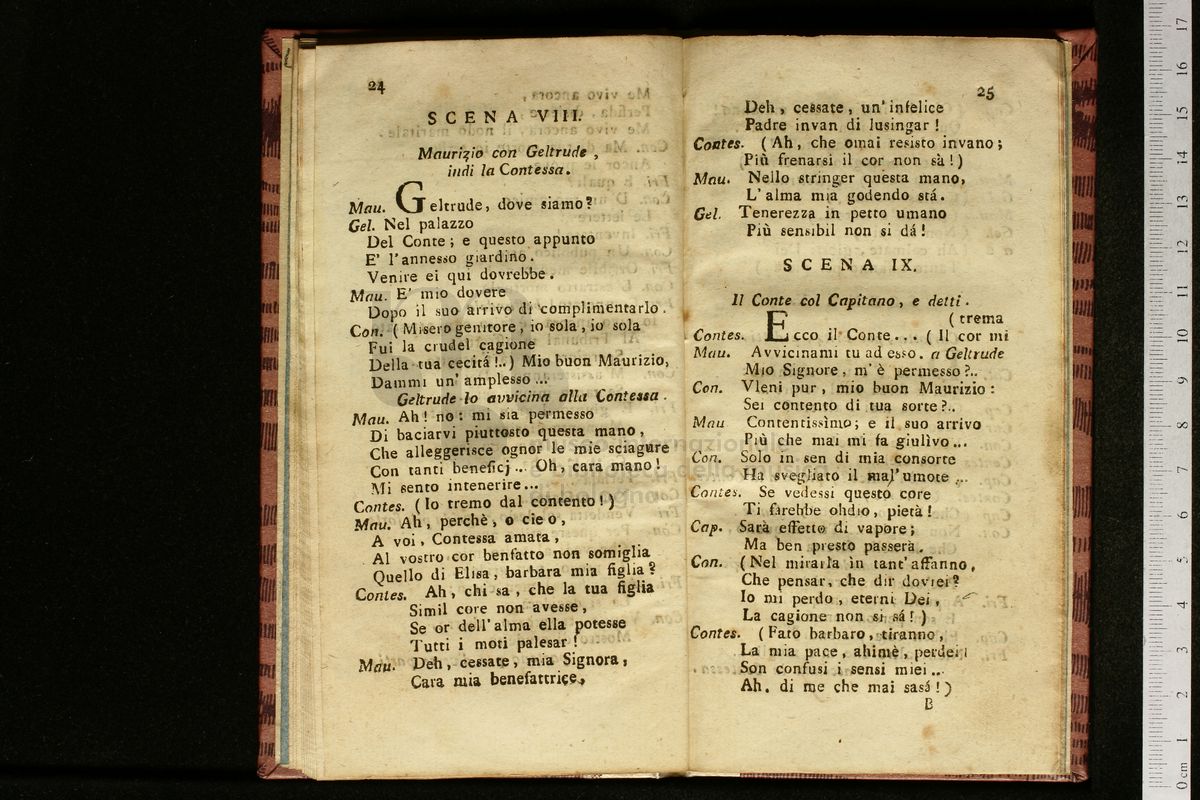 24
SCENA VIII.
Maurizio con Geltrude,
indi la Contessa.
Mau. Geltrude, dove siamo?
Gel. Nel palazzo
Del Conte; e questo appunto
E' l'annesso giardino.
Venire ei qui dovrebbe.
Mau. E' mio dovere
Dopo il suo arrivo di complimentarlo.
Con. (Misero genitore, io sola, io sola
Fui la crudel cagione
Della tua cecitá!..) Mio buon Maurizio,
Dammi un' amplesso...
Geltrude lo avvicina alla Contessa.
Mau. Ah! no: mi sia permesso
Di baciarvi piuttosto questa mano,
Che alleggerisce ognor le mie sciagure
Con tanti beneficj... Oh, cara mano!
Mi sento intenerire...
Contes. (Io tremo dal contento!)
Mau. Ah, perchè, o cieo,
A voi, Contessa amata,
Al vostro cor benfatto non somiglia
Quello di Elisa, barbara mia figlia?
Contes. Ah, chi sa, che la tua figlia
Simil core non avesse,
Se or dell'alma ella potesse
Tutti i moti palesar!
Mau. Deh, cessate, mia Signora,
Cara mia benefattrice,
25
Deh, cessate, un' infelice
Padre invan di lusingar!
Contes. (Ah, che omai resisto invano;
Più frenarsi il cor non sà!)
Mau. Nello stringer questa mano,
L'alma mia godendo stá.
Gel. Tenerezza in petto umano
Più sensibil non si dá!
SCENA IX.
Il Conte col Capitano, e detti.
(trema
Contes. Ecco il Conte... (Il cor mi
Mau. Avvicinami tu ad esso. a Geltrude
Mio Signore, m'è permesso?..
Con. Vleni pur, mio buon Maurizio:
Sei contento di tua sorte?..
Mau Contentissimo; e il suo arrivo
Più che mai mi fa giulìvo...
Con. Solo in sen di mia consorte
Ha svegliato il mal' umote...
Contes. Se vedessi questo core
Ti farebbe ohdio, pietà!
Cap. Sarà effetto di vapore;
Ma ben presto passerà.
Con. (Nel mirarla in tant' affanno,
Che pensar, che dir dovrei?
Io mi perdo, eterni Dei,
La cagione non si sá!)
Contes. (Fato barbaro, tiranno,
La mia pace, ahimè, perdei;
Son confusi i sensi miei...
Ah, di me che mai sasá!)
B